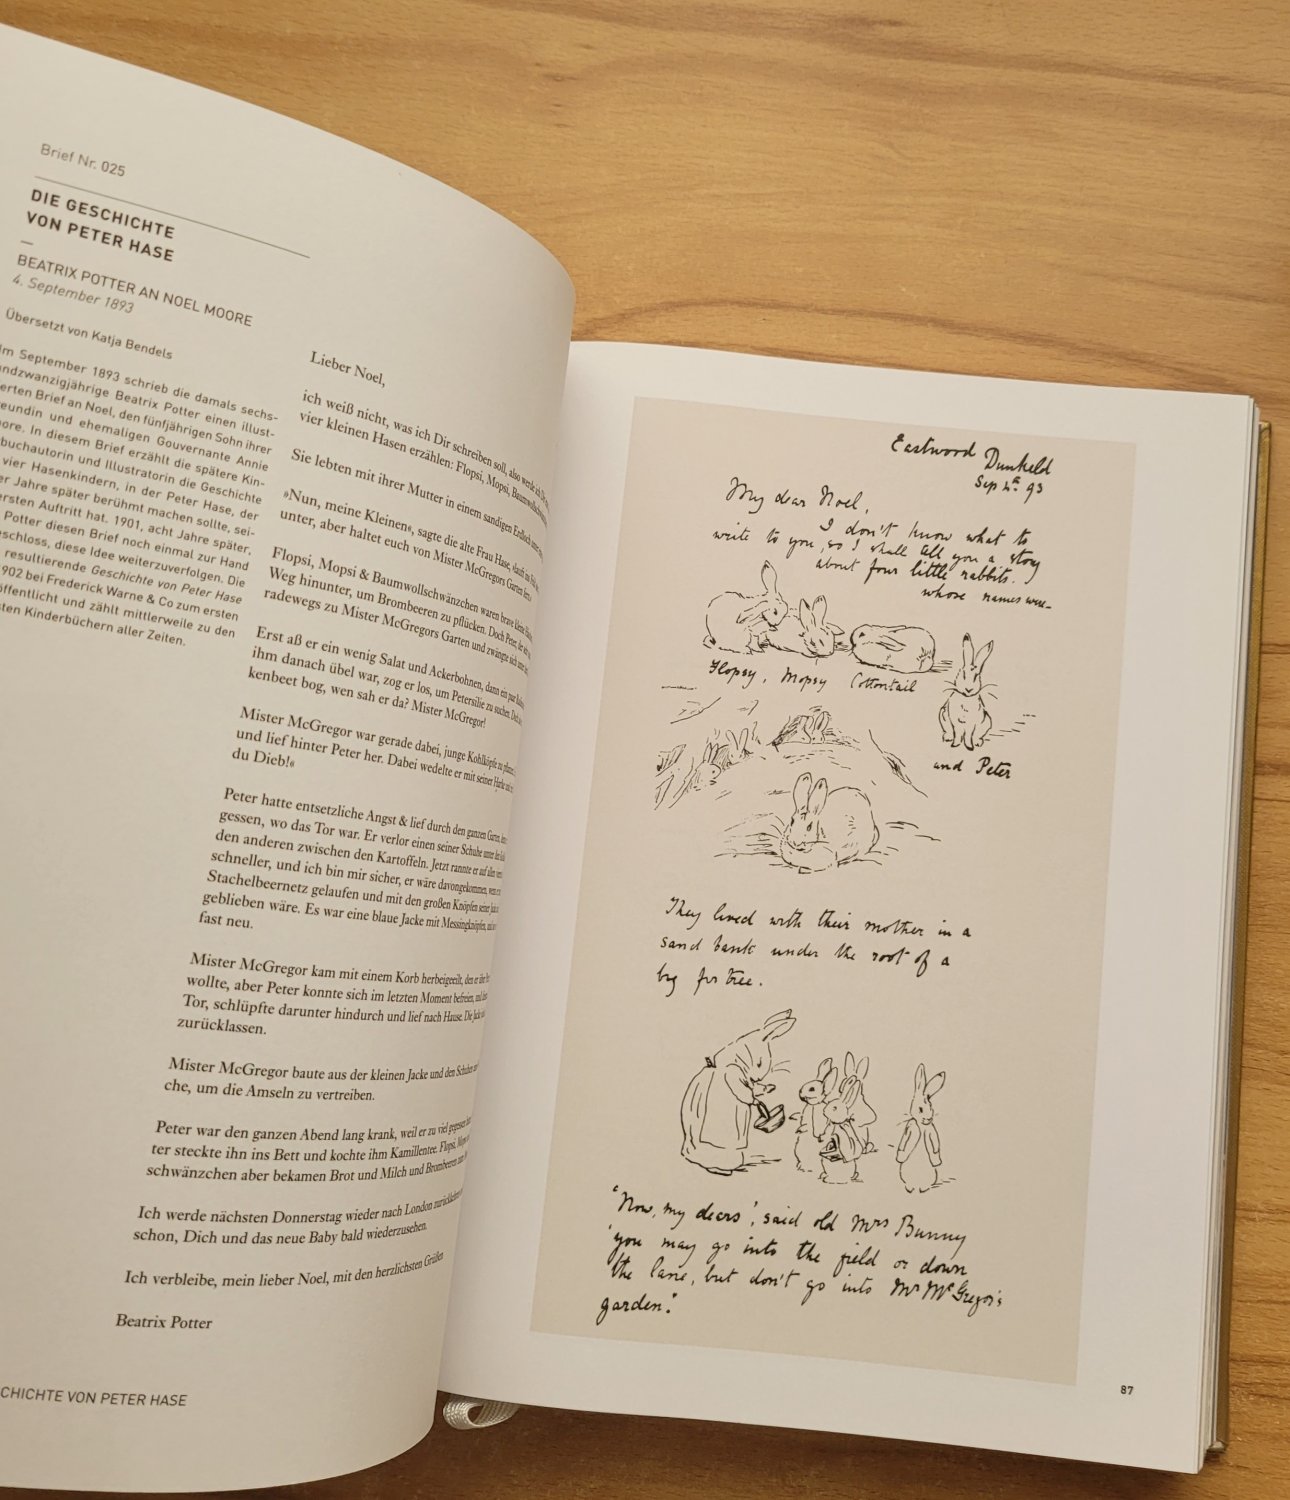 Brief Nr. 025
DIE GESCHICHTE
VON PETER HASE
—
BEATRIX POTTER AN NOEL MOORE
4. September 1893
Übersetzt von Katja Bendels
Im September 1893 schrieb die damals sechs-
undzwanzigjährige Beatrix Potter einen illust-
erten Brief an Noel, den fünfjährigen Sohn ihrer
reundin und ehemaligen Gouvernante Annie
oore. In diesem Brief erzählt die spätere Kin-
buchautorin und Illustratorin die Geschichte
vier Hasenkindern, in der Peter Hase, der
er Jahre später berühmt machen sollte, sei-
ersten Auftritt hat. 1901, acht Jahre später,
Potter diesen Brief noch einmal zur Hand
eschloss, diese Idee weiterzuverfolgen. Die
resultierende Geschichte von Peter Hase
902 bei Frederick Warne & Co zum ersten
öffentlicht und zählt mittlerweile zu den
sten Kinderbüchern aller Zeiten.
Lieber Noel,
ich weiß nicht, was ich Dir schreiben soll, also werde ich Dir
vier kleinen Hasen erzählen: Flopsi, Mopsi, Baumwollschwänzchen
Sie lebten mit ihrer Mutter in einem sandigen Erdloch unter
»Nun, meine Kleinen«, sagte die alte Frau Hase, »lauft ins Feld
unter, aber haltet euch von Mister McGregors Garten fern.«
Flopsi, Mopsi & Baumwollschwänzchen waren brave kleine
Weg hinunter, um Brombeeren zu pflücken. Doch Peter, der
radewegs zu Mister McGregors Garten und zwängte sich unter
Erst aß er ein wenig Salat und Ackerbohnen, dann ein paar
ihm danach übel war, zog er los, um Petersilie zu suchen.
kenbeet bog, wen sah er da? Mister McGregor!
Mister McGregor war gerade dabei, junge Kohlköpfe zu
und lief hinter Peter her. Dabei wedelte er mit seiner Harke
du Dieb!«
Peter hatte entsetzliche Angst & lief durch den ganzen Garten,
gessen, wo das Tor war. Er verlor einen seiner Schuhe unter
den anderen zwischen den Kartoffeln. Jetzt rannte er auf allen
schneller, und ich bin mir sicher, er wäre davongekommen,
Stachelbeernetz gelaufen und mit den großen Knöpfen seiner
geblieben wäre. Es war eine blaue Jacke mit Messingknöpfen,
fast neu.
Mister McGregor kam mit einem Korb herbeigeeilt, den er über
wollte, aber Peter konnte sich im letzten Moment befreien,
Tor, schlüpfte darunter hindurch und lief nach Hause. Die Jacke
zurücklassen.
Mister McGregor baute aus der kleinen Jacke und den Schuhen
che, um die Amseln zu vertreiben.
Peter war den ganzen Abend lang krank, weil er zu viel gegessen
ter steckte ihn ins Bett und kochte ihm Kamillentee. Flopsi,
schwänzchen aber bekamen Brot und Milch und Brombeeren
Ich werde nächsten Donnerstag wieder nach London
schon, Dich und das neue Baby bald wiederzusehen.
Ich verbleibe, mein lieber Noel, mit den herzlichsten Grüßen
Beatrix Potter
CHICHTE VON PETER HASE
Eastwood Dunkeld
Sep 4th 93
My dear Noel,
I don't know what to
write to you, so I shall tell you a story
about four little rabbits.
whose names were—
Flopsy, Mopsy Cottontail
and Peter
They lived with their mother in a
sand bank under the root of a
big fir tree.
'Now, my dears', said old Mrs Bunny
'you may go into the field or down
the lane, but don't go into Mr McGregor's
garden.'
87